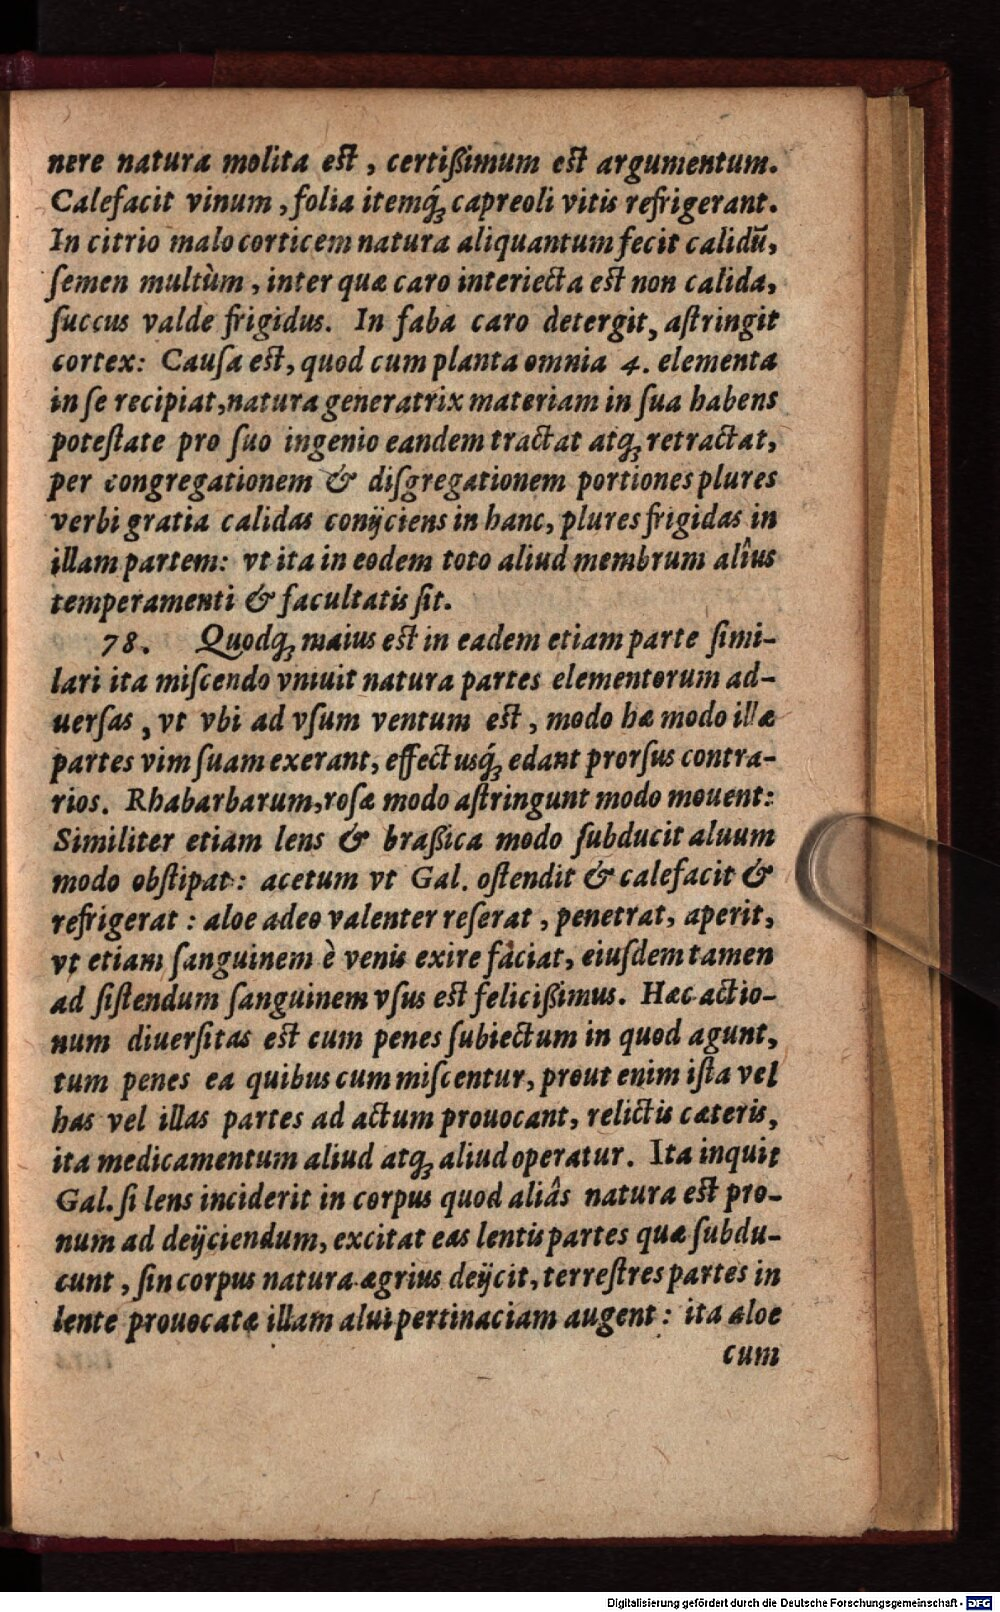 nere natura molita est, certißimum est argumentum.
Calefacit vinum, folia itemq́; capreoli vitis refrigerant.
In citrio malo corticem natura aliquantum fecit calidū,
ſemen multùm, inter quæ caro interiecta est non calida,
ſuccus valde frigidus. In faba caro detergit, aſtringit
cortex: Cauſa est, quod cum planta omnia 4. elementa
in ſe recipiat, natura generatrix materiam in ſua habens
poteſtate pro ſuo ingenio eandem tractat atq; retractat,
per congregationem & diſgregationem portiones plures
verbi gratia calidas conijciens in hanc, plures frigidas in
illam partem: vt ita in eodem toto aliud membrum alîus
temperamenti & facultatis ſit.
78. Quodq; maius est in eadem etiam parte ſimi-
lari ita miſcendo vniuit natura partes elementorum ad-
uerſas, vt vbi ad vſum ventum est, modo hæ modo illæ
partes vim ſuam exerant, effectusq́; edant prorſus contra-
rios. Rhabarbarum, roſæ modo aſtringunt modo mouent:
Similiter etiam lens & braßica modo ſubducit aluum
modo obſtipat: acetum vt Gal. oſtendit & calefacit &
refrigerat: aloe adeo valenter reſerat, penetrat, aperit,
vt etiam ſanguinem è venis exire faciat, eiuſdem tamen
ad ſiſtendum ſanguinem vſus est felicißimus. Hæc actio-
num diuerſitas est cum penes ſubiectum in quod agunt,
tum penes ea quibus cum miſcentur, prout enim iſta vel
has vel illas partes ad actum prouocant, relictis cæteris,
ita medicamentum aliud atq; aliud operatur. Ita inquit
Gal. ſi lens inciderit in corpus quod aliâs natura est pro-
num ad deijciendum, excitat eas lentis partes quæ ſubdu-
cunt, ſin corpus natura ægrius deijcit, terreſtres partes in
lente prouocatæ illam alui pertinaciam augent: ita aloe
cum
Digitalisierung gefördert durch die Deutsche Forschungsgemeinschaft - DFG